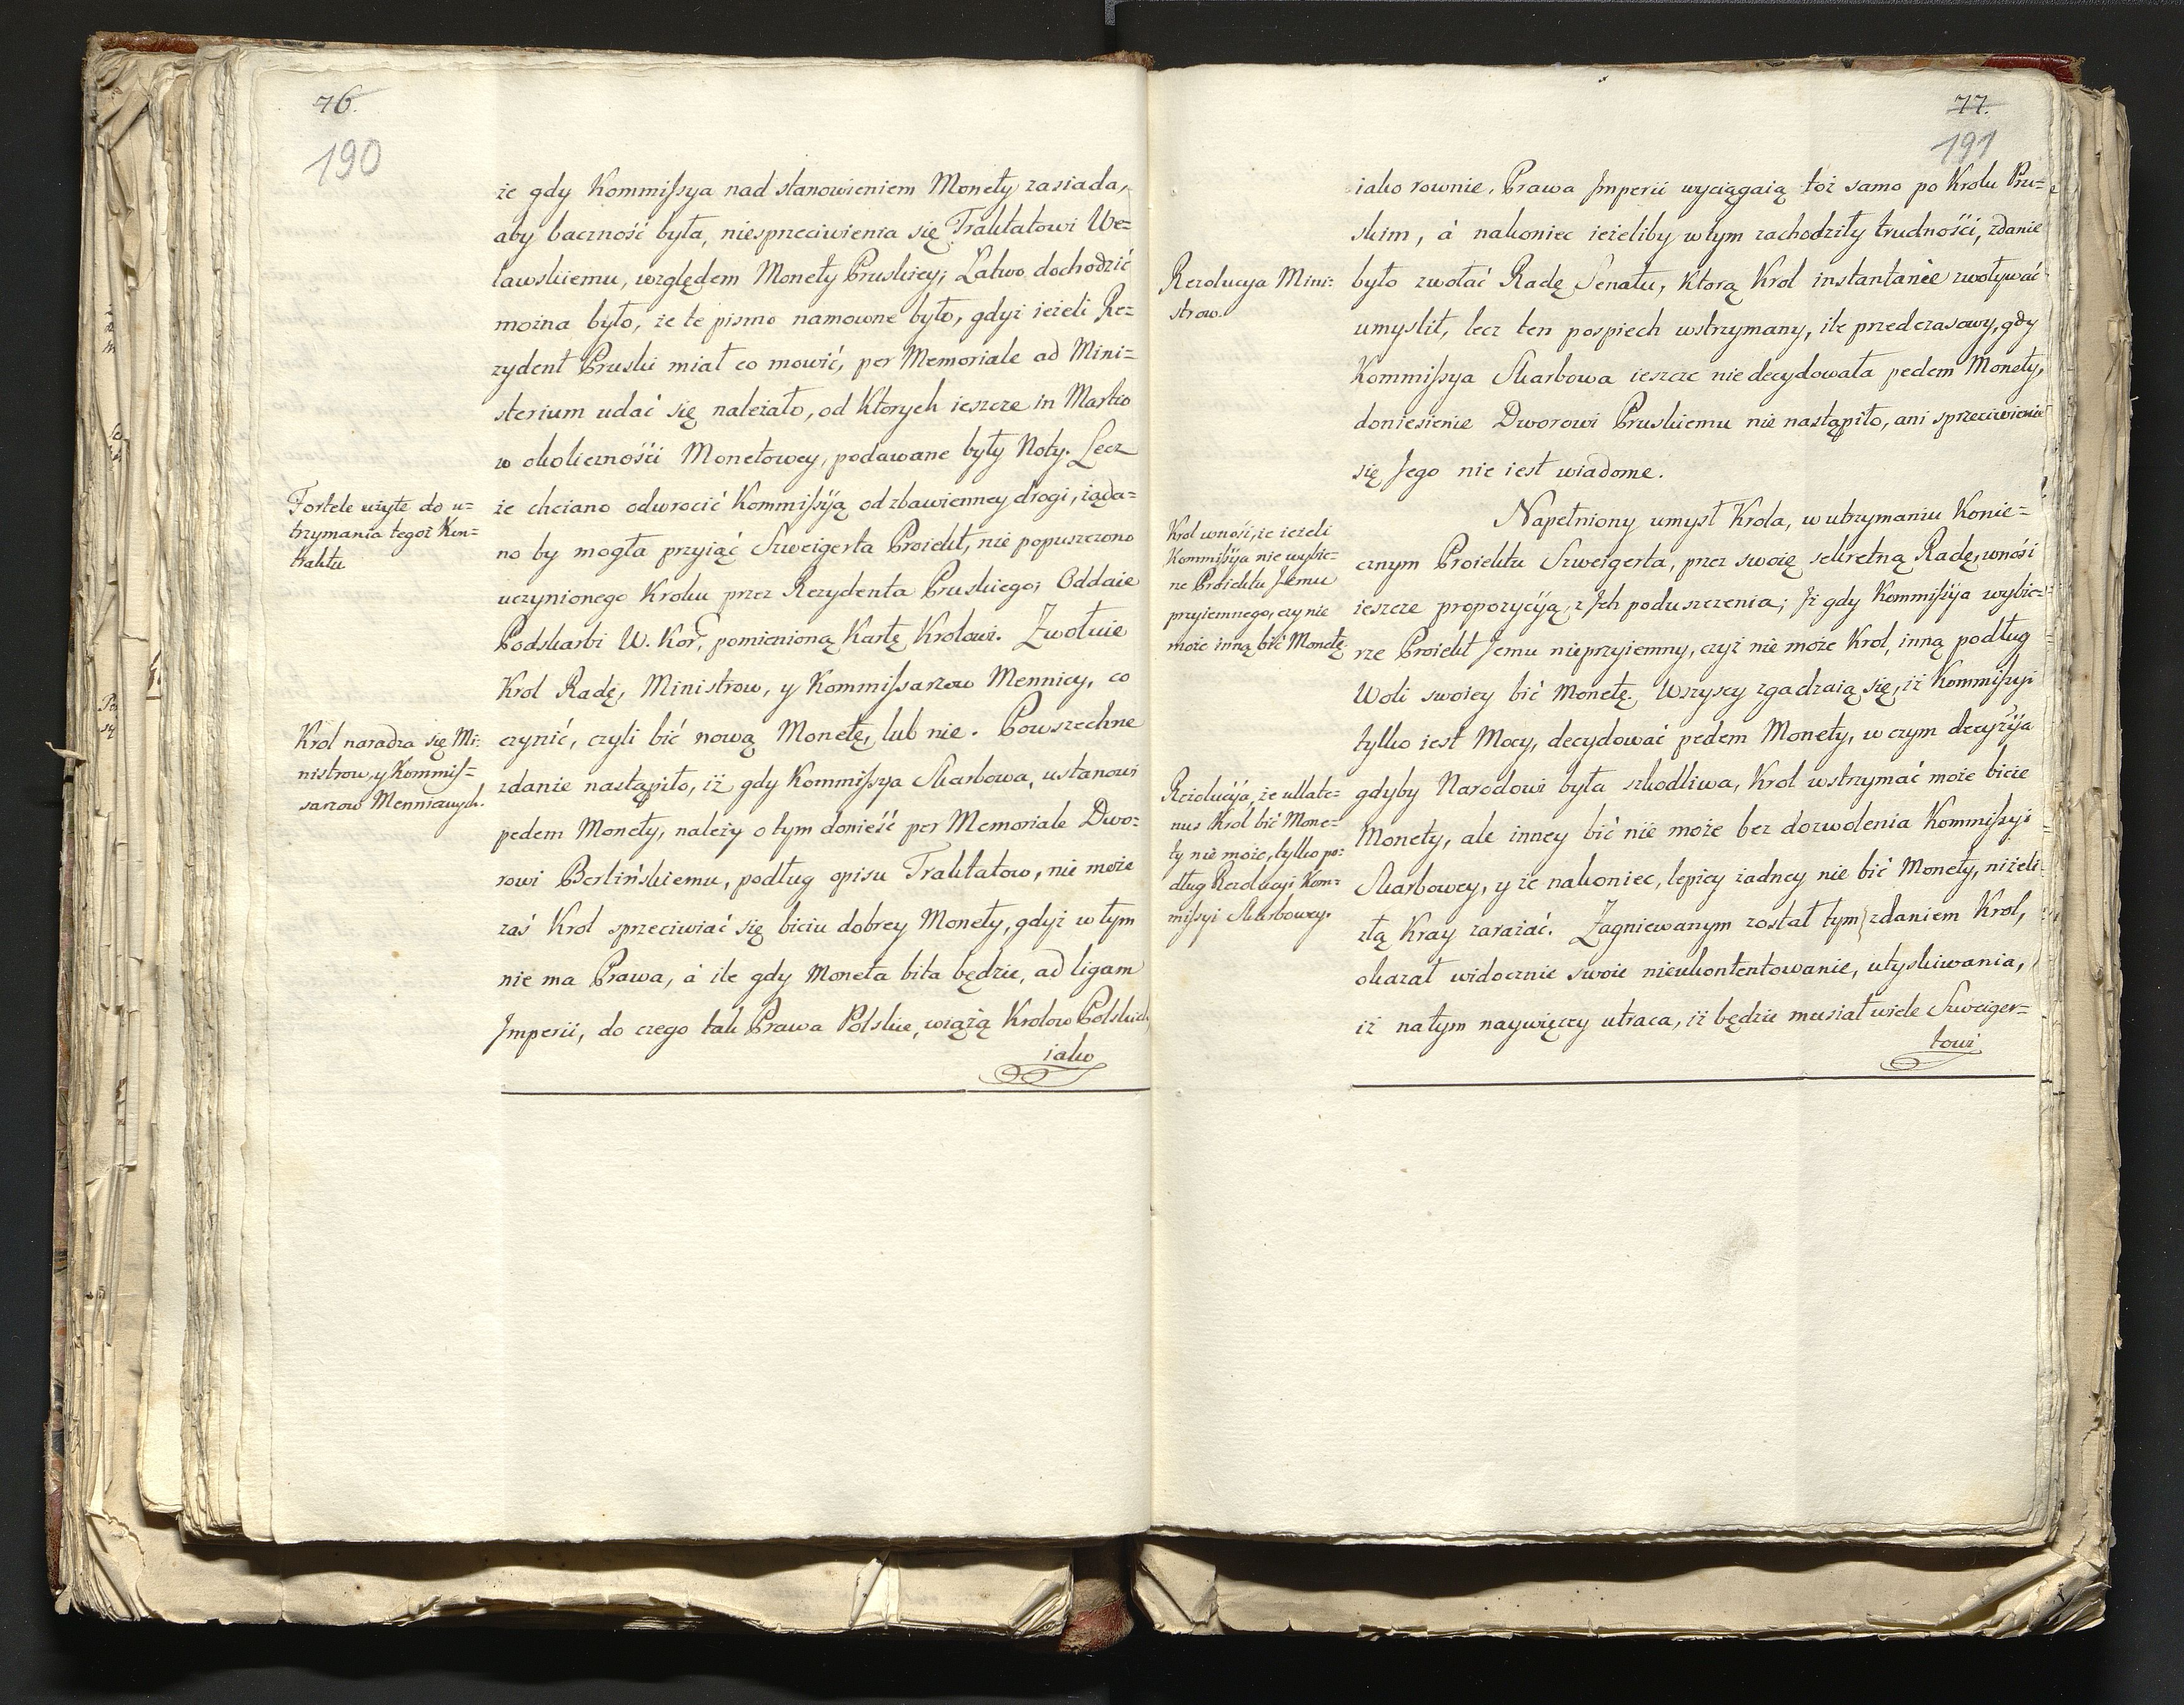 76.
190
że gdy Kommissya nad stanowieniem Monety zasiada,
aby baczność była, niesprzeciwienia się Traktatowi We=
lawskiemu, względem Monety Pruskiey; Łatwo dochodzić
można było, że te pismo namowne było, gdyż ieżeli Re=
zydent Pruski miał co mowić, per Memoriale ad Mini=
sterium udać się należało, od Ktorych ieszcze in Martio
w okoliczności Monetowey, podawane były Noty. Lecz
Fortele użyte do u=
trzymania tegoż Kon=
traktu
że chciano odwrocić Kommissyą od zbawienney drogi, żąda=
no by mogła przyiąć Szweigerta Proiekt, nie popuszczono
uczynionego Kroku przez Rezydenta Pruskiego; Oddaie
Podskarbi W. Kor: pomienioną Kartę Krolowi. Zwołuie
Krol Radę, Ministrow, y Kommissarzow Mennicy, co
Krol naradza się Mi=
nistrow, y Kommis=
sarzow Menniczych.
czynić, czyli bić nową Monetę, lub nie. Powszechne
zdanie nastąpiło, iż gdy Kommissya Skarbowa, ustanowi
pedem Monety, należy o tym donieść per Memoriale Dwo=
rowi Berlińskiemu, podług opisu Traktatow, nie może
zaś Krol sprzeciwiać się biciu dobrey Monety, gdyż w tym
nie ma Prawa, á ile gdy Moneta bita będzie, ad ligam
Imperii, do czego tak Prawa Polskie, wiążą Krolow Polskich
iako
77.
191
iako rownie, Prawa Imperii wyciągaią toż samo po Krolu Pru=
skim, á nakoniec ieżeliby w tym zachodziły trudności, zdanie
Rezolucya Mini=
strow.
było zwołać Radę Senatu, Ktorą Krol instantanèe zwoływać
umyslił, lecz ten pospiech wstrzymany, ile przedczasowy, gdy
Kommissya Skarbowa ieszcze nie decydowała pedem Monety,
doniesienie Dworowi Pruskiemu nie nastąpiło, ani sprzeciwienie
się Jego nie iest wiadome.
Napełniony umysł Krola, w utrzymaniu Konie=
Krol wnosi, że ieżeli
Kommissya nie wybie=
rze Proiektu Jemu
przyiemnego, czy nie
może inną bić Monetę.
cznym Proiektu Szweigerta, przez swoię sekretną Radę, wnosi
ieszcze propozycyą, z Jch poduszczenia; Jż gdy Kommissya wybie=
rze Proiekt Jemu nieprzyiemny, czyż nie może Krol, inną podług
Woli swoiey bić Monetę. Wszyscy zgadzaią się, iż Kommissyi
tylko iest Mocy, decydować pedem Monety, w czym decyzya
Rezolucya, że ullate=
nus Krol bić Mone=
ty nie może, tylko po=
dług Rezolucyi Kom=
missyi Skarbowey.
gdyby Narodowi była szkodliwa, Krol wstrzymać może bicie
Monety, ale inney bić nie może bez dozwolenia Kommissyi
Skarbowey, y że nakoniec, lepiey żadney nie bić Monety, niżeli
złą Kray zarażać. Zagniewanym został tym zdaniem Krol,
okazał widocznie swoie nieukontentowanie, utyskiwania,
iż na tym naywięcey utraca, iż będzie musiał wiele Szweiger=
towi